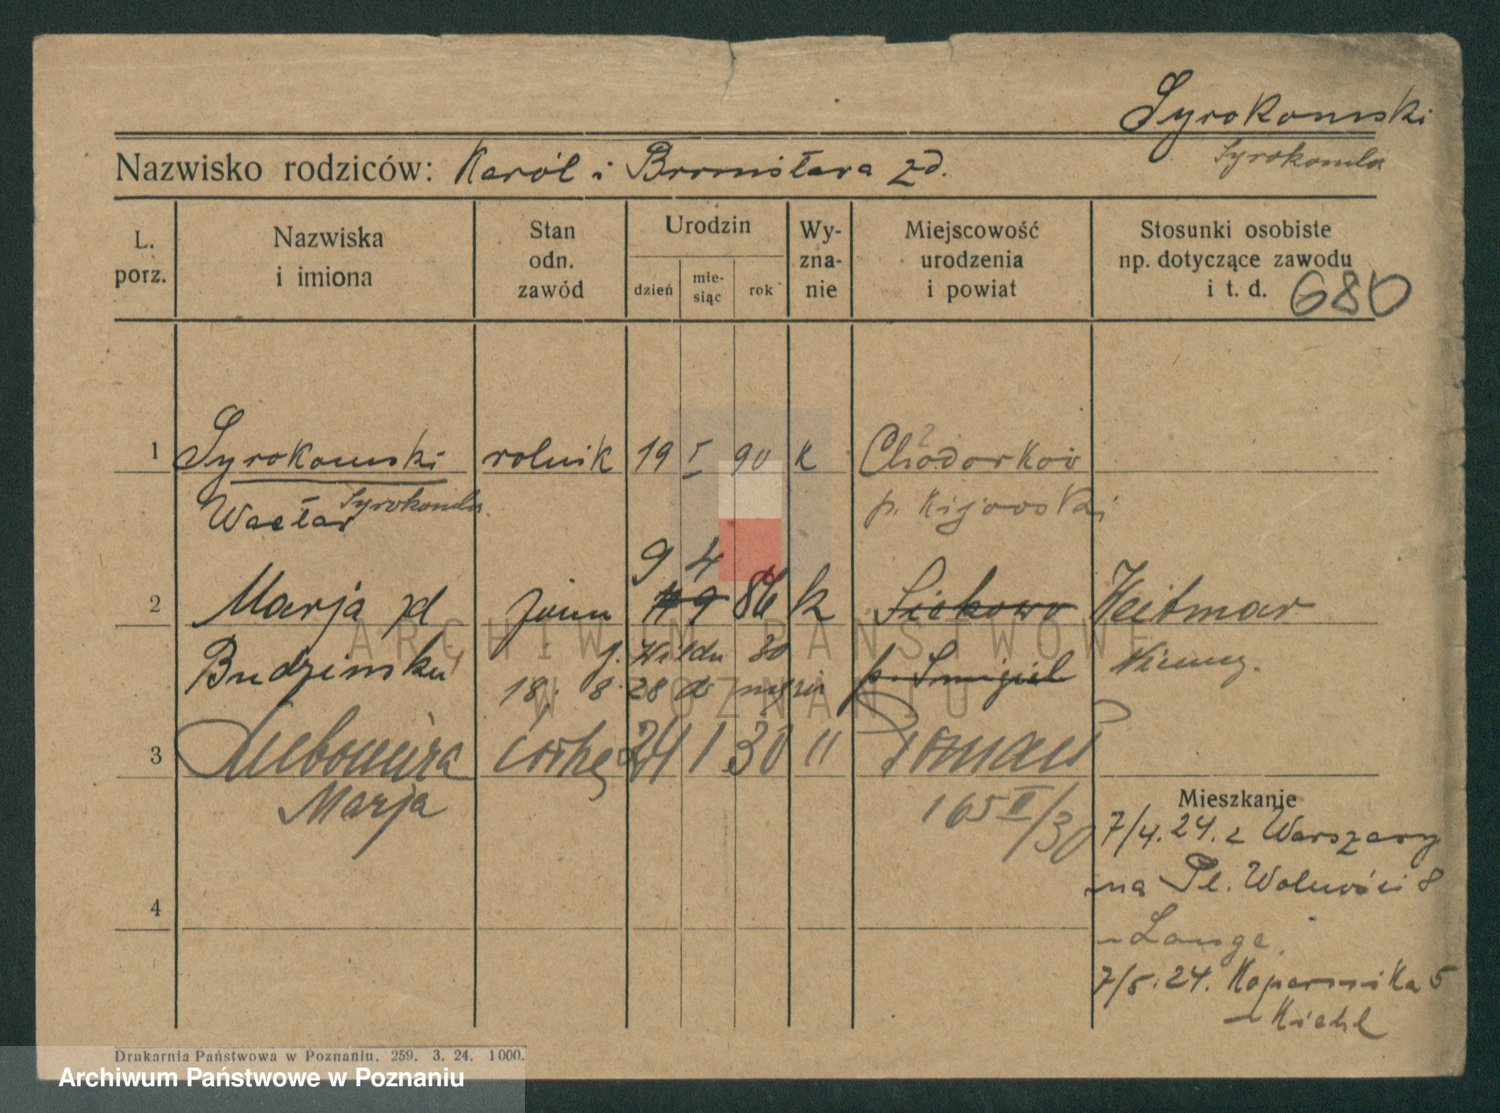 Syrokomski
Syrokomla
Nazwisko rodziców: Karól i Bronisława zd.
L. porz.
Nazwiska i imiona
Stan odn. zawód
Urodzin
dzień
mie-
siąc
rok
Wy-
zna-
nie
Miejscowość
urodzenia
i powiat
Stosunki osobiste
np. dotyczące zawodu
i t. d. 680
1 Syrokomski rolnik 19 I 90 k Chodorków
Wacław Syrokomla p. Kijowski
9 4
2 Marja zd żona 86 k Siekowo Heitmar
Budzińska 30 p. Śmigiel
18. 8. 28
3 Lubomira córka 24 1 30 " Poznań
Marja 165 II/30
Mieszkanie
7/4. 24. z Warszawy
na Pl. Wolności 8
- Lange
4
7/5. 24. Kopernika 5
- Kiehl
Drukarnia Państwowa w Poznaniu. 259. 3. 24. 1000.
ARCHIWUM PAŃSTWOWE
W POZNANIU
Archiwum Państwowe w Poznaniu